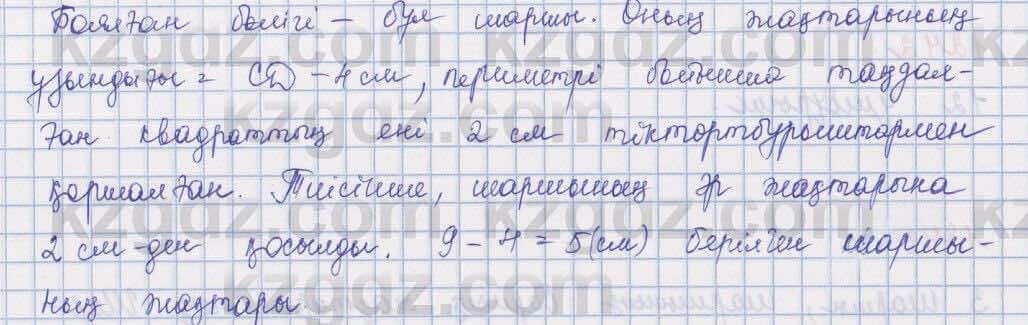 Боялған бөлігі – бұл шаршы. Оның жақтарының
ұзындығы = CD – 4 см, периметрі бойынша таңдал-
ған квадраттың ені 2 см тіктөртбұрыштармен
қоршалған. Тиісінше, шаршының әр жақтарына
2 см-ден қосылды. 9 – 4 = 5 (см) берілген шаршы-
ның жақтары.
kzgdz.com